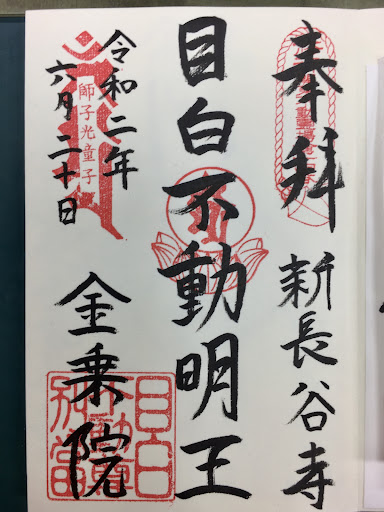 奉拜
新長谷寺
目白不動明王
令和二年
六月二十日
師子光童子
金乗院